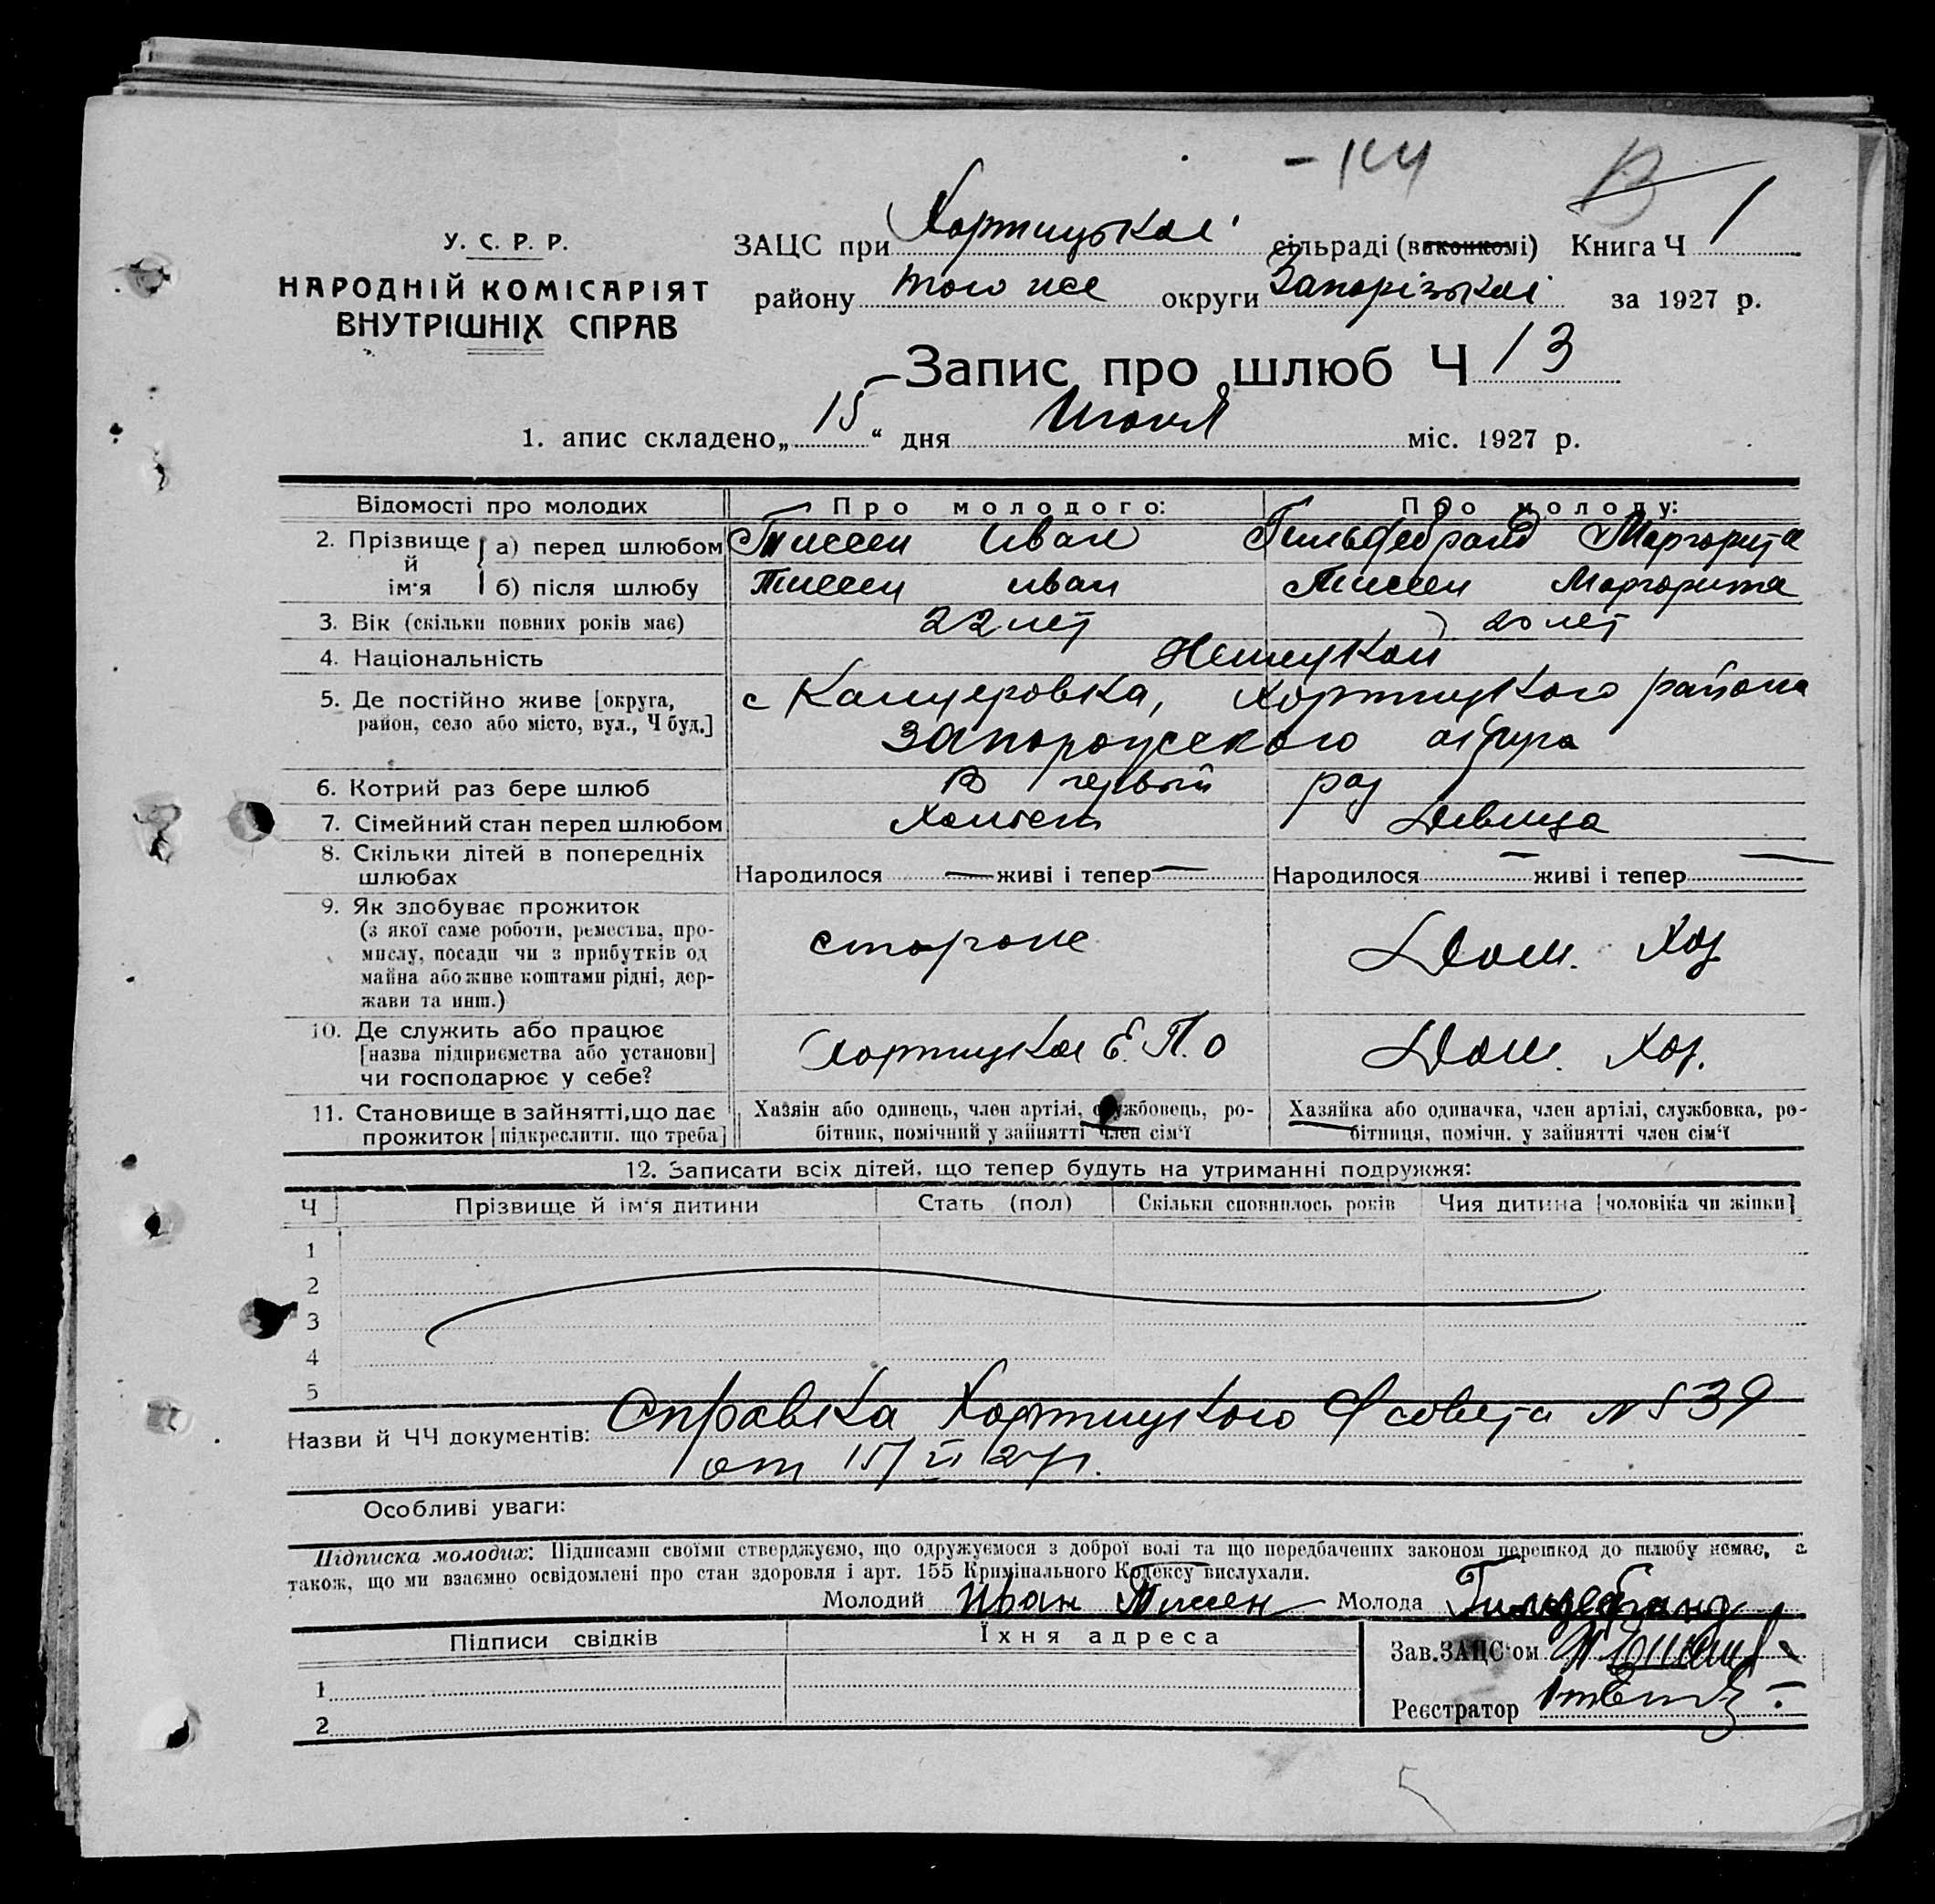 -144 В
У. С. Р. Р.
НАРОДНІЙ КОМІСАРІЯТ
ВНУТРІШНІХ СПРАВ
ЗАЦС при Хортицької сільраді (виконкомі) Книга Ч 1
району того же округи Запорізької за 1927 р.
Запис про шлюб Ч 13
1. апис складено „15“ дня Июня міс. 1927 р.
Відомості про молодих Про молодого: Про молоду:
2. Прізвище й ім'я а) перед шлюбом Тиссен Иван Гильдебранд Маргарита
б) після шлюбу Тиссен Иван Тиссен Маргарита
3. Вік (скільки повних років має) 22 лет 20 лет
4. Національність Немецкой
5. Де постійно живе [округа, с Канцеровка, Хортицкого района
район, село або місто, вул., Ч буд.] Запорожского округа
6. Котрий раз бере шлюб В первый раз
7. Сімейний стан перед шлюбом Холост Девица
8. Скільки дітей в попередніх
шлюбах Народилося — живі і тепер — Народилося — живі і тепер —
9. Як здобуває прожиток
(з якої саме роботи, ремества, про-
мислу, посади чи з прибутків од
майна або живе коштами рідні, дер-
жави та инш.) сторож Дом. Хоз
10. Де служить або працює
[назва підприємства або установи]
чи господарює у себе? Хортицкое Е.П.О Дом. Хоз.
11. Становище в зайнятті, що дає Хазяін або одинець, член артілі, службовець, ро- Хазяйка або одиначка, член артілі, службовка, ро-
прожиток [підкреслити. що треба] бітник, помічний у зайнятті член сім'ї бітниця, помічн. у зайнятті член сім'ї
12. Записати всіх дітей. що тепер будуть на утриманні подружжя:
Ч Прізвище й ім'я дитини Стать (пол) Скільки сповнилось років Чия дитина [чоловіка чи жінки]
1
2
3
4
5
Назви й ЧЧ документів: Справка Хортицкого совета N 539
от 15/VI 27 г.
Особливі уваги:
Підписка молодих: Підписами своїми стверджуємо, що одружуємося з доброї волі та що передбачених законом перешкод до шлюбу немає, а
також, що ми взаємно освідомлені про стан здоровля і арт. 155 Кримінального Кодексу вислухали.
Молодий Иван Тиссен Молода Гильдебранд
Підписи свідків Їхня адреса
Зав. ЗАЦС'ом
1
Реєстратор
2